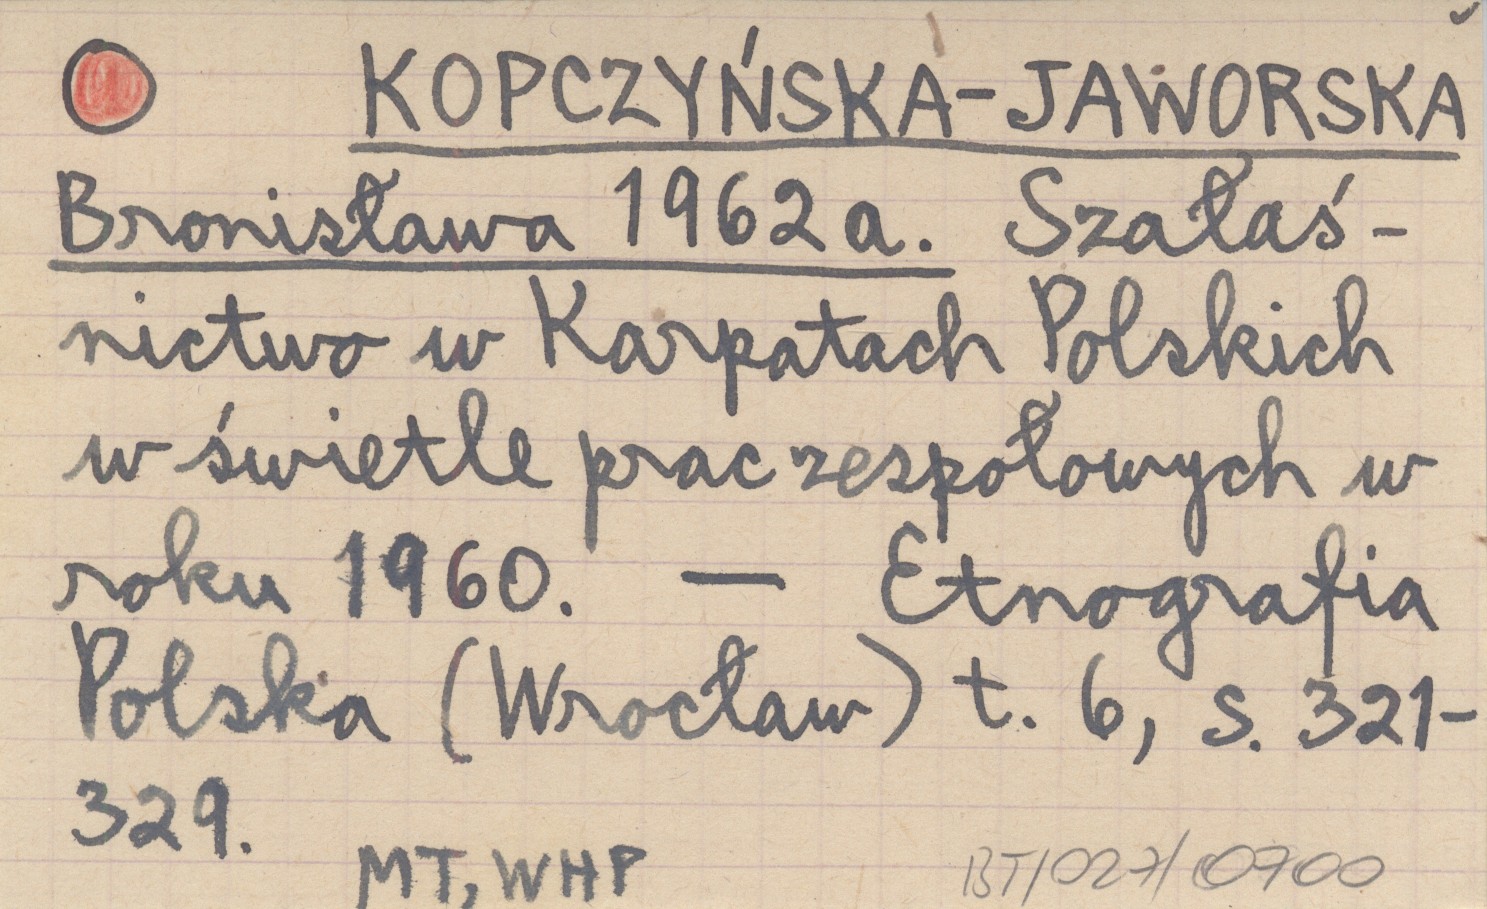 KOPCZYŃSKA-JAWORSKA
Bronisława 1962a. Szałaś-
nictwo w Karpatach Polskich
w świetle prac zespołowych w
roku 1960. — Etnografia
Polska (Wrocław) t. 6, s. 321-
329.
MT, WHP
BT/027/0700